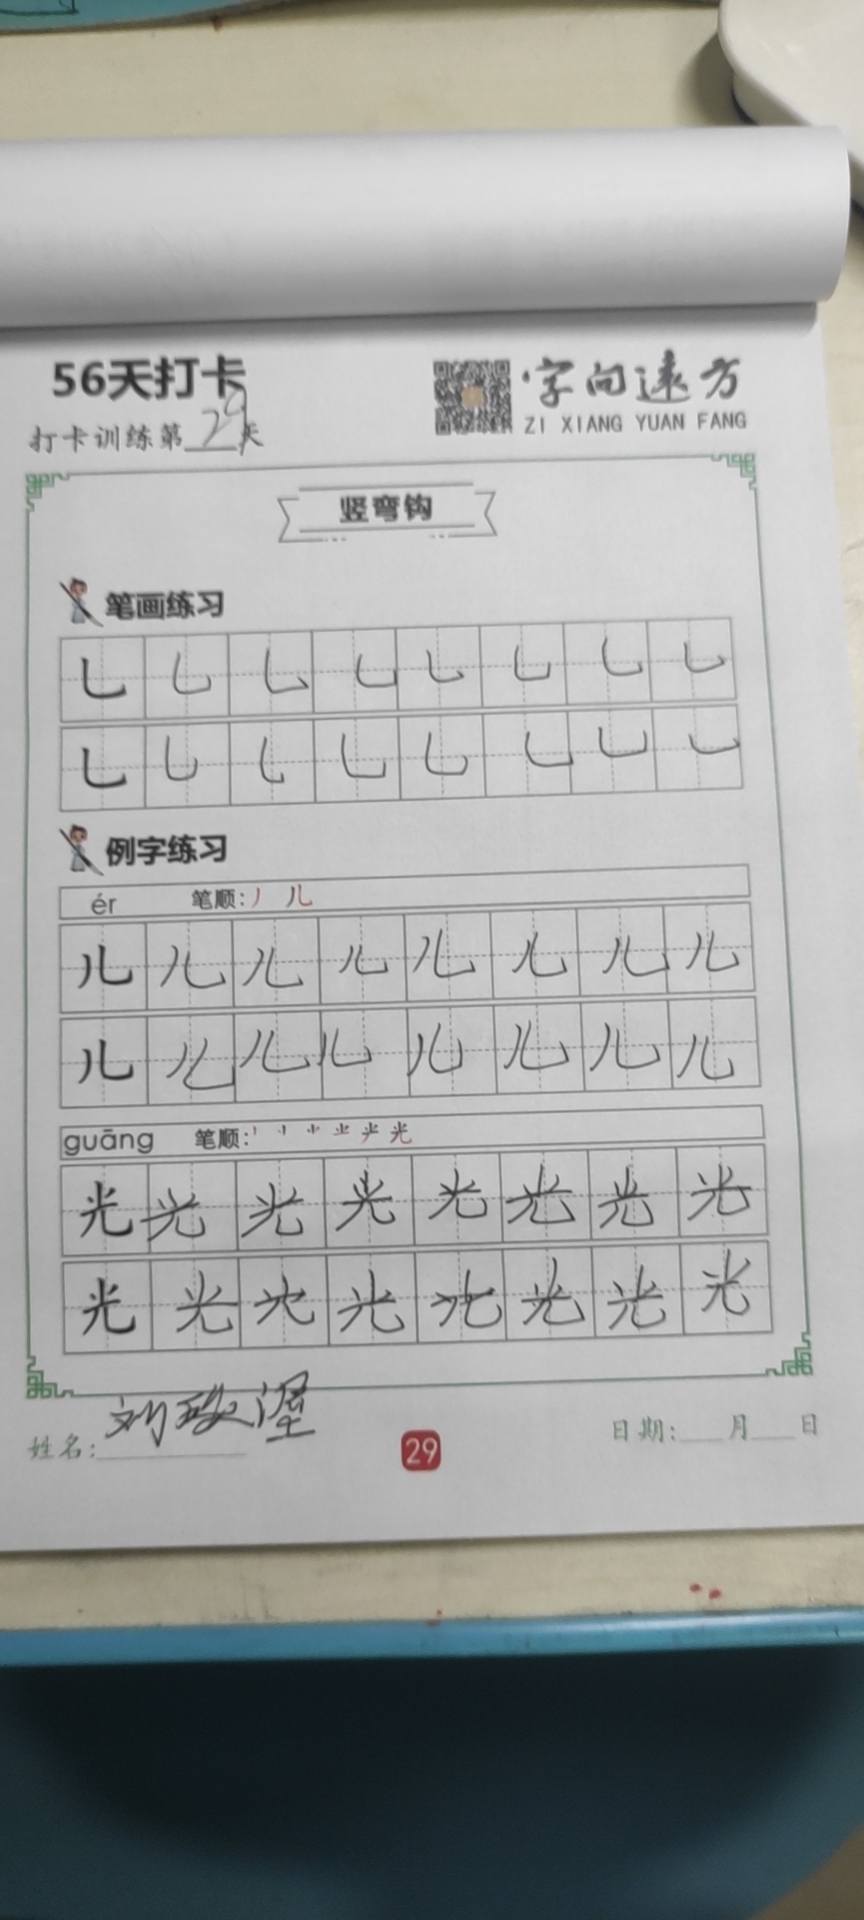 56天打卡
字向远方
打卡训练第29天
ZI XIANG YUAN FANG
竖弯钩
笔画练习
乚乚乚乚乚乚乚乚
乚乚乚乚乚乚乚乚
例字练习
ér 笔顺:丿 儿
儿儿儿儿儿儿儿儿
儿儿儿儿儿儿儿儿
guāng 笔顺:
光光光光光光光光
光光光光光光光光
姓名:刘
29
日期:___月___日